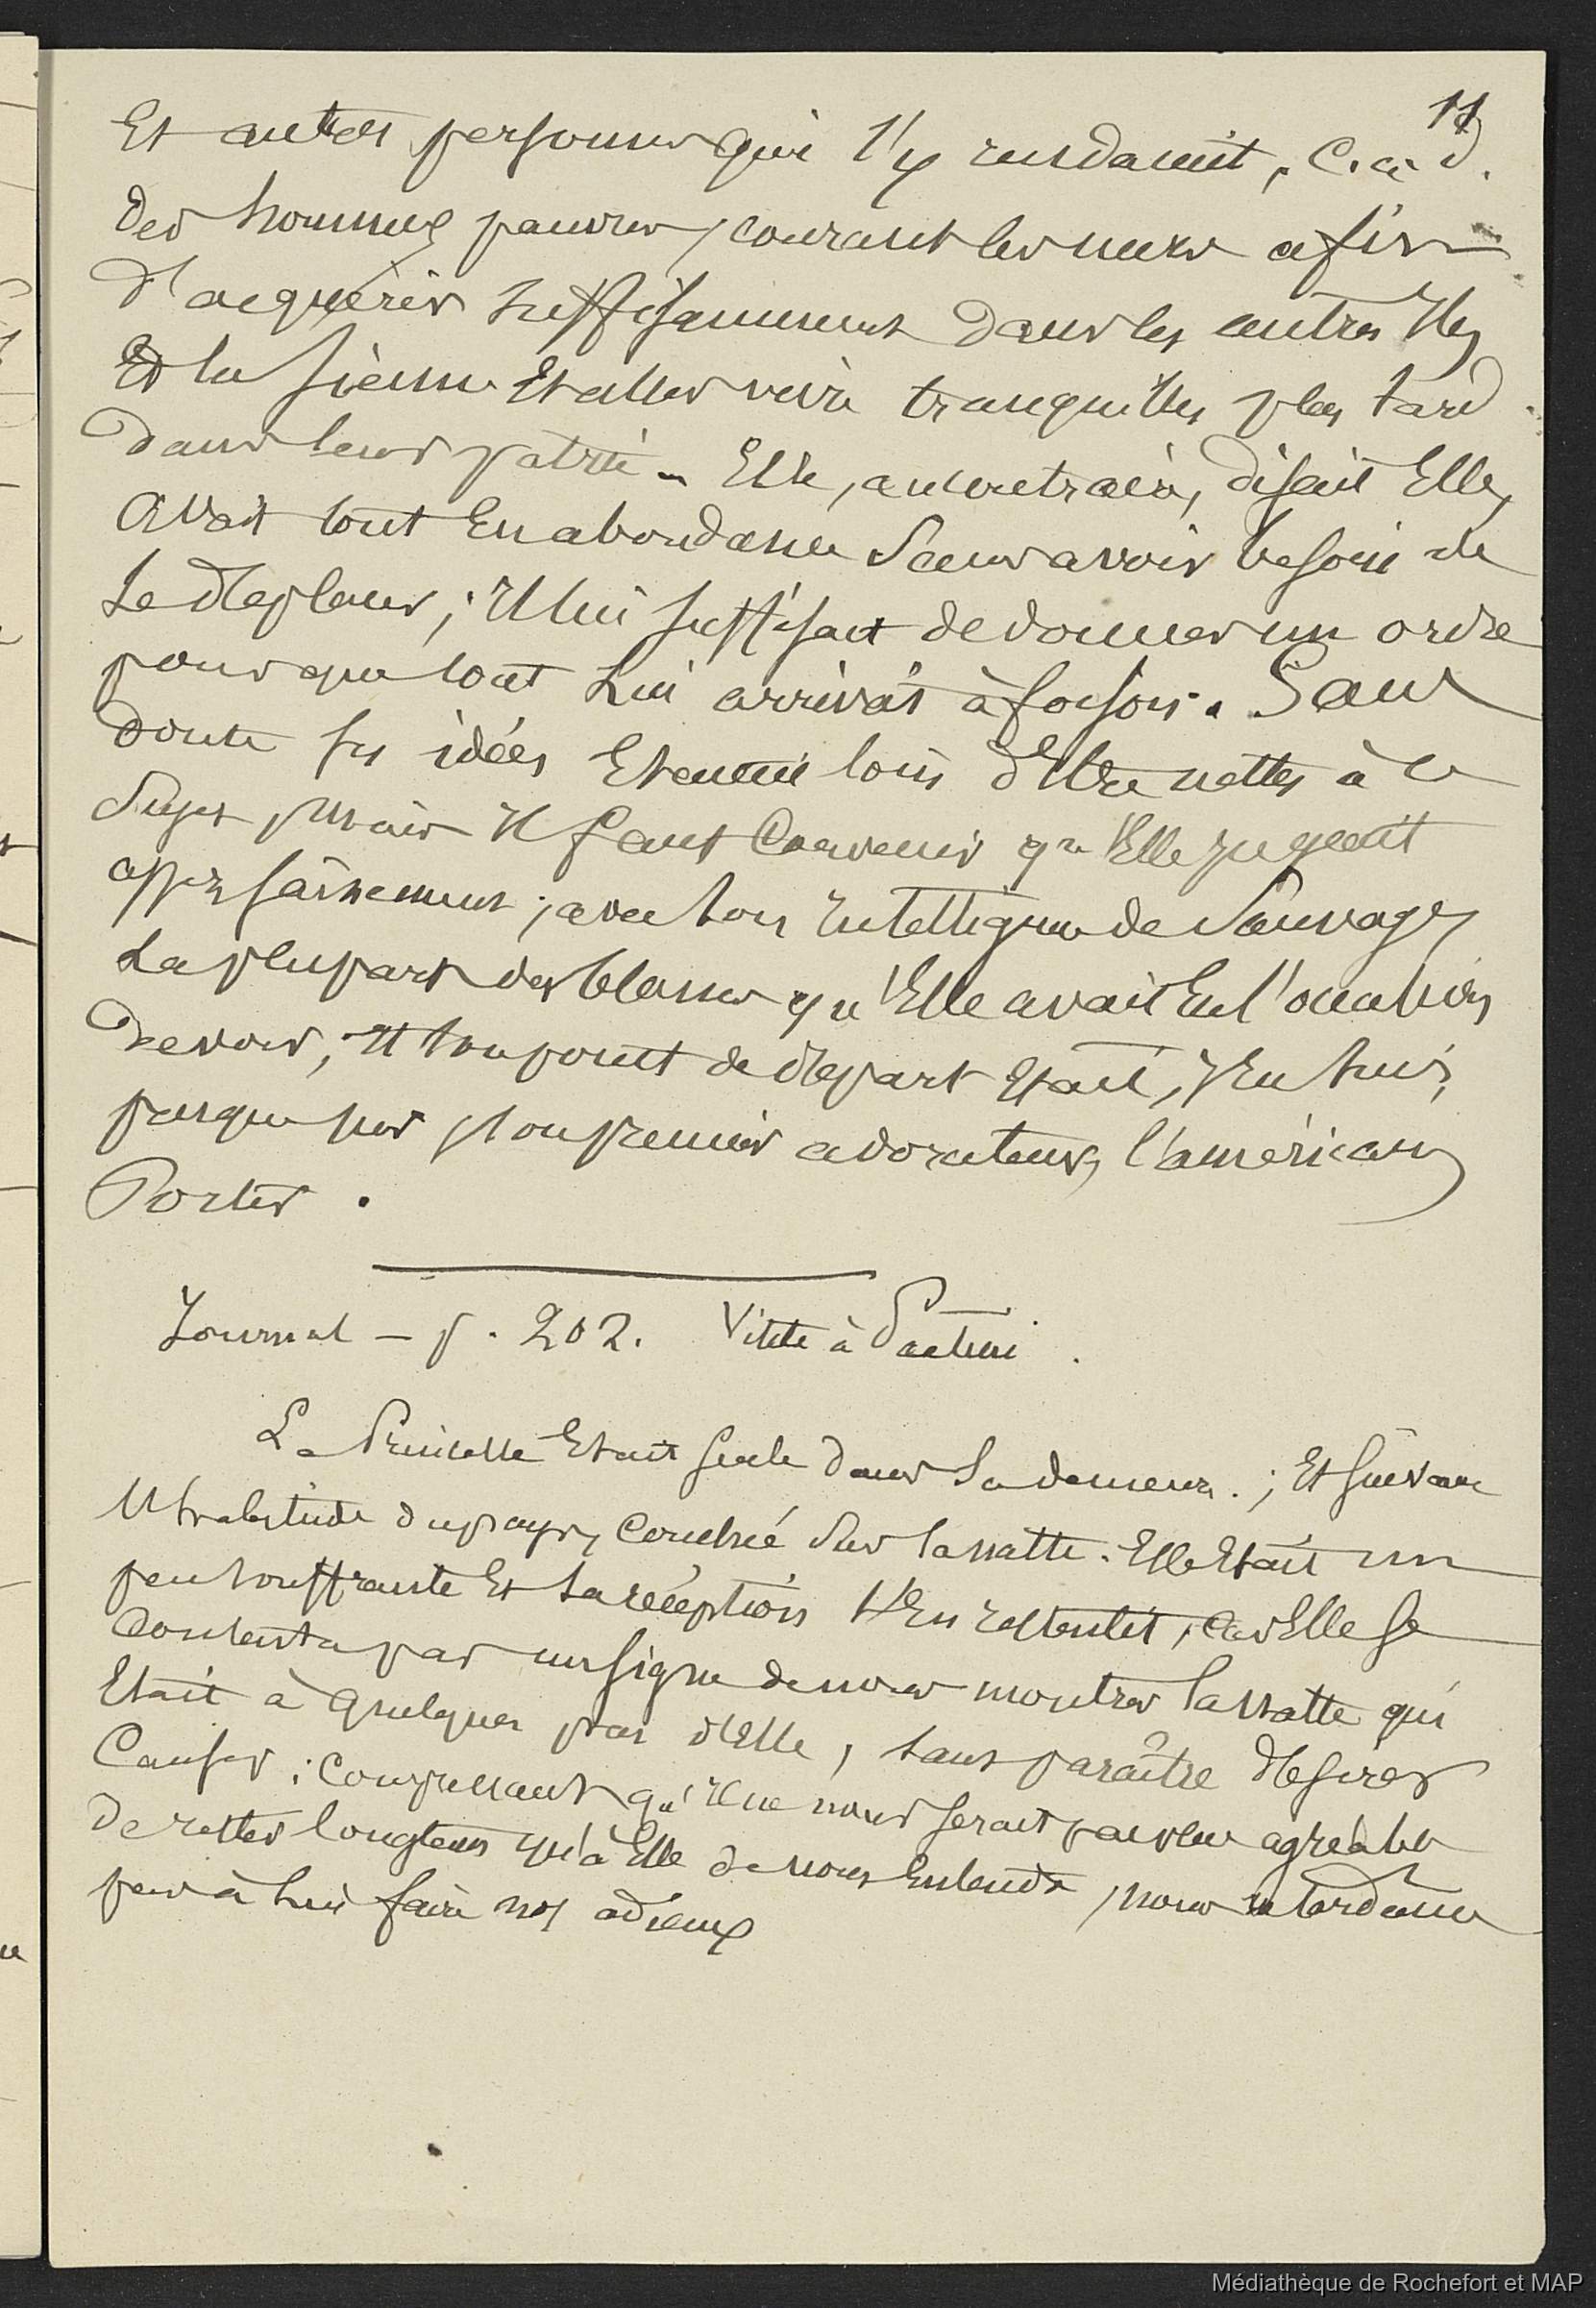 11
Et autres personnes qui s'y rendaient, c. à d.
des hommes pauvres, courant les mers afin
d'acquérir suffisamment dans les autres Iles
Et la sienne Et aller vivre tranquilles plus tard
dans leur patrie. Elle, au contraire, disait Elle,
Avait tout En abondance Sans avoir besoin de
se déplacer ; Il lui suffisait de donner un ordre
pour que tout lui arrivât à foison. Sans
doute ses idées Etaient loin d'Etre nettes à ce
Sujet, mais Il faut Convenir qu'Elle jugeait
assez sainement, avec son Intelligence de Sauvage,
La plupart des blancs qu'Elle avait Eu l'occasion
de voir, Et son point de départ Etait, En Suis,
presque sur, son premier adorateur, l'américain
Porter.
Journal – p. 202. Visite à Paetini.
La Princesse Etait seule dans Sa demeure ; Et suivant
l'habitude du pays, Couchée Sur la natte. Elle Etait un
peu souffrante Et sa réception s'En ressentit, car Elle se
Contenta par un signe de nous montrer la natte qui
Etait à quelques pas d'Elle, sans paraître désirer
Causer ; Comprenant qu'Il ne nous serait pas plus agréable
de rester longtems qu'à Elle de nous Entendre, nous ne tardâmes
pas à lui faire nos adieux
Médiathèque de Rochefort et MAP